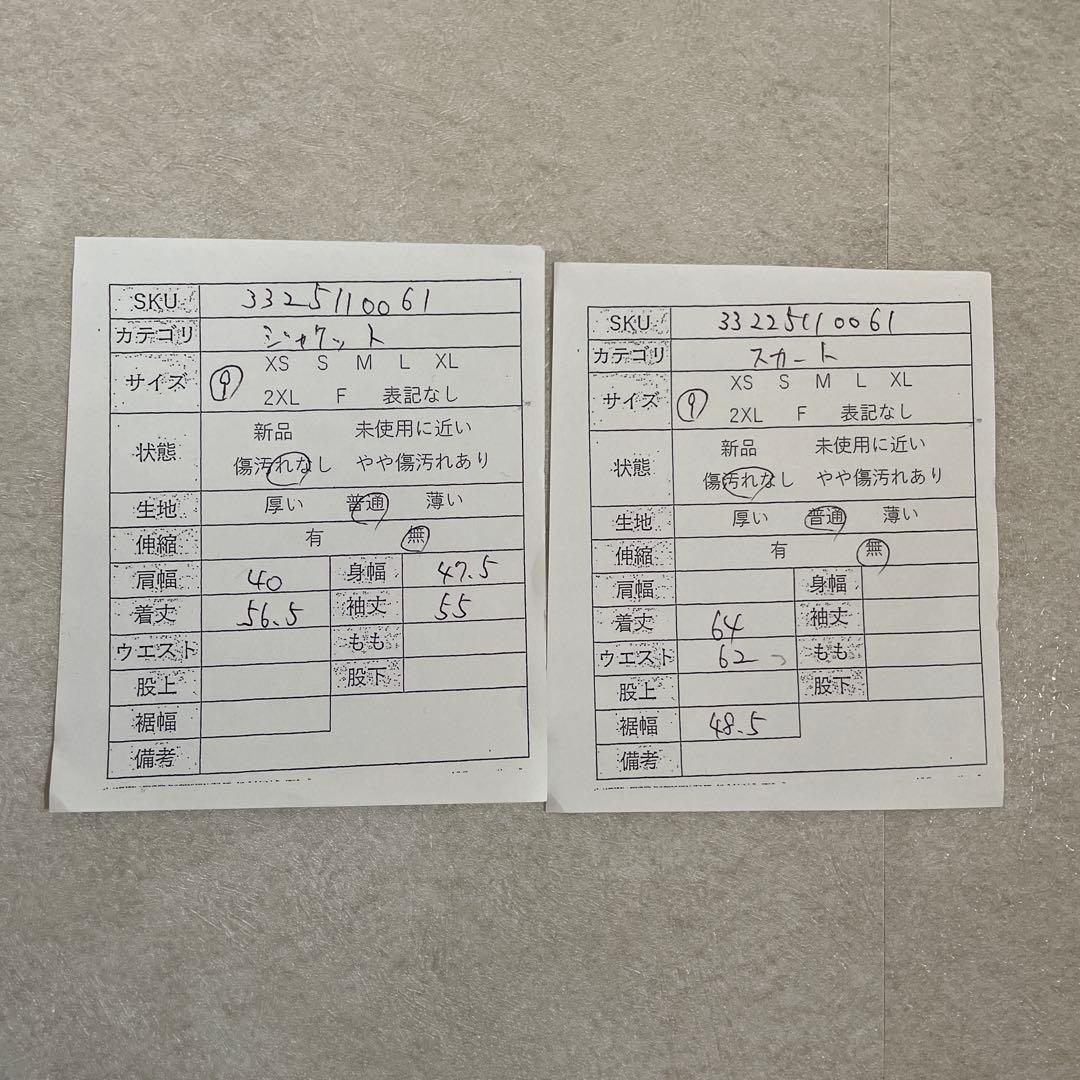 SKU 3325110061
カテゴリ ジャケット
サイズ ⑨ XS S M L XL
2XL F 表記なし
状態 新品 未使用に近い
傷汚れなし やや傷汚れあり
生地 厚い 普通 薄い
伸縮 有 無
肩幅 40 身幅 47.5
着丈 56.5 袖丈 55
ウエスト もも
股上 股下
裾幅
備考
SKU 33225110061
カテゴリ スカート
サイズ ⑨ XS S M L XL
2XL F 表記なし
状態 新品 未使用に近い
傷汚れなし やや傷汚れあり
生地 厚い 普通 薄い
伸縮 有 無
肩幅 身幅
着丈 64 袖丈
ウエスト 62 もも
股上 股下
裾幅 48.5
備考